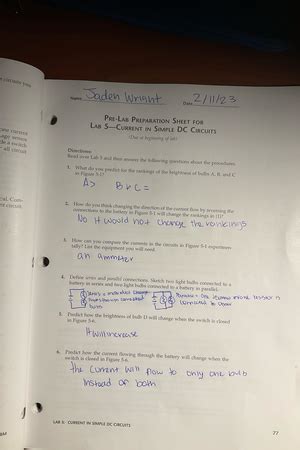 Name Jaden Wright Date 2/11/23
PRE-LAB PREPARATION SHEET FOR
LAB 5—CURRENT IN SIMPLE DC CIRCUITS
(Due at beginning of lab)
Directions:
Read over Lab 5 and then answer the following questions about the procedures.
1. What do you predict for the rankings of the brightness of bulbs A, B, and C
in Figure 5-1?
A> B & C =
2. How do you think changing the direction of the current flow by reversing the
connections to the battery in Figure 5-1 will change the rankings in (1)?
No it would not change the rankings
3. How can you compare the currents in the circuits in Figure 5-1 experimen-
tally? List the equipment you will need.
an ammeter
4. Define series and parallel connections. Sketch two light bulbs connected to a
battery in series and two light bulbs connected to a battery in parallel.
5. Predict how the brightness of bulb D will change when the switch is closed
in Figure 5-6.
It will increase
6. Predict how the current flowing through the battery will change when the
switch is closed in Figure 5-6.
the current will flow to only one bulb
instead of both
LAB 5: CURRENT IN SIMPLE DC CIRCUITS
77